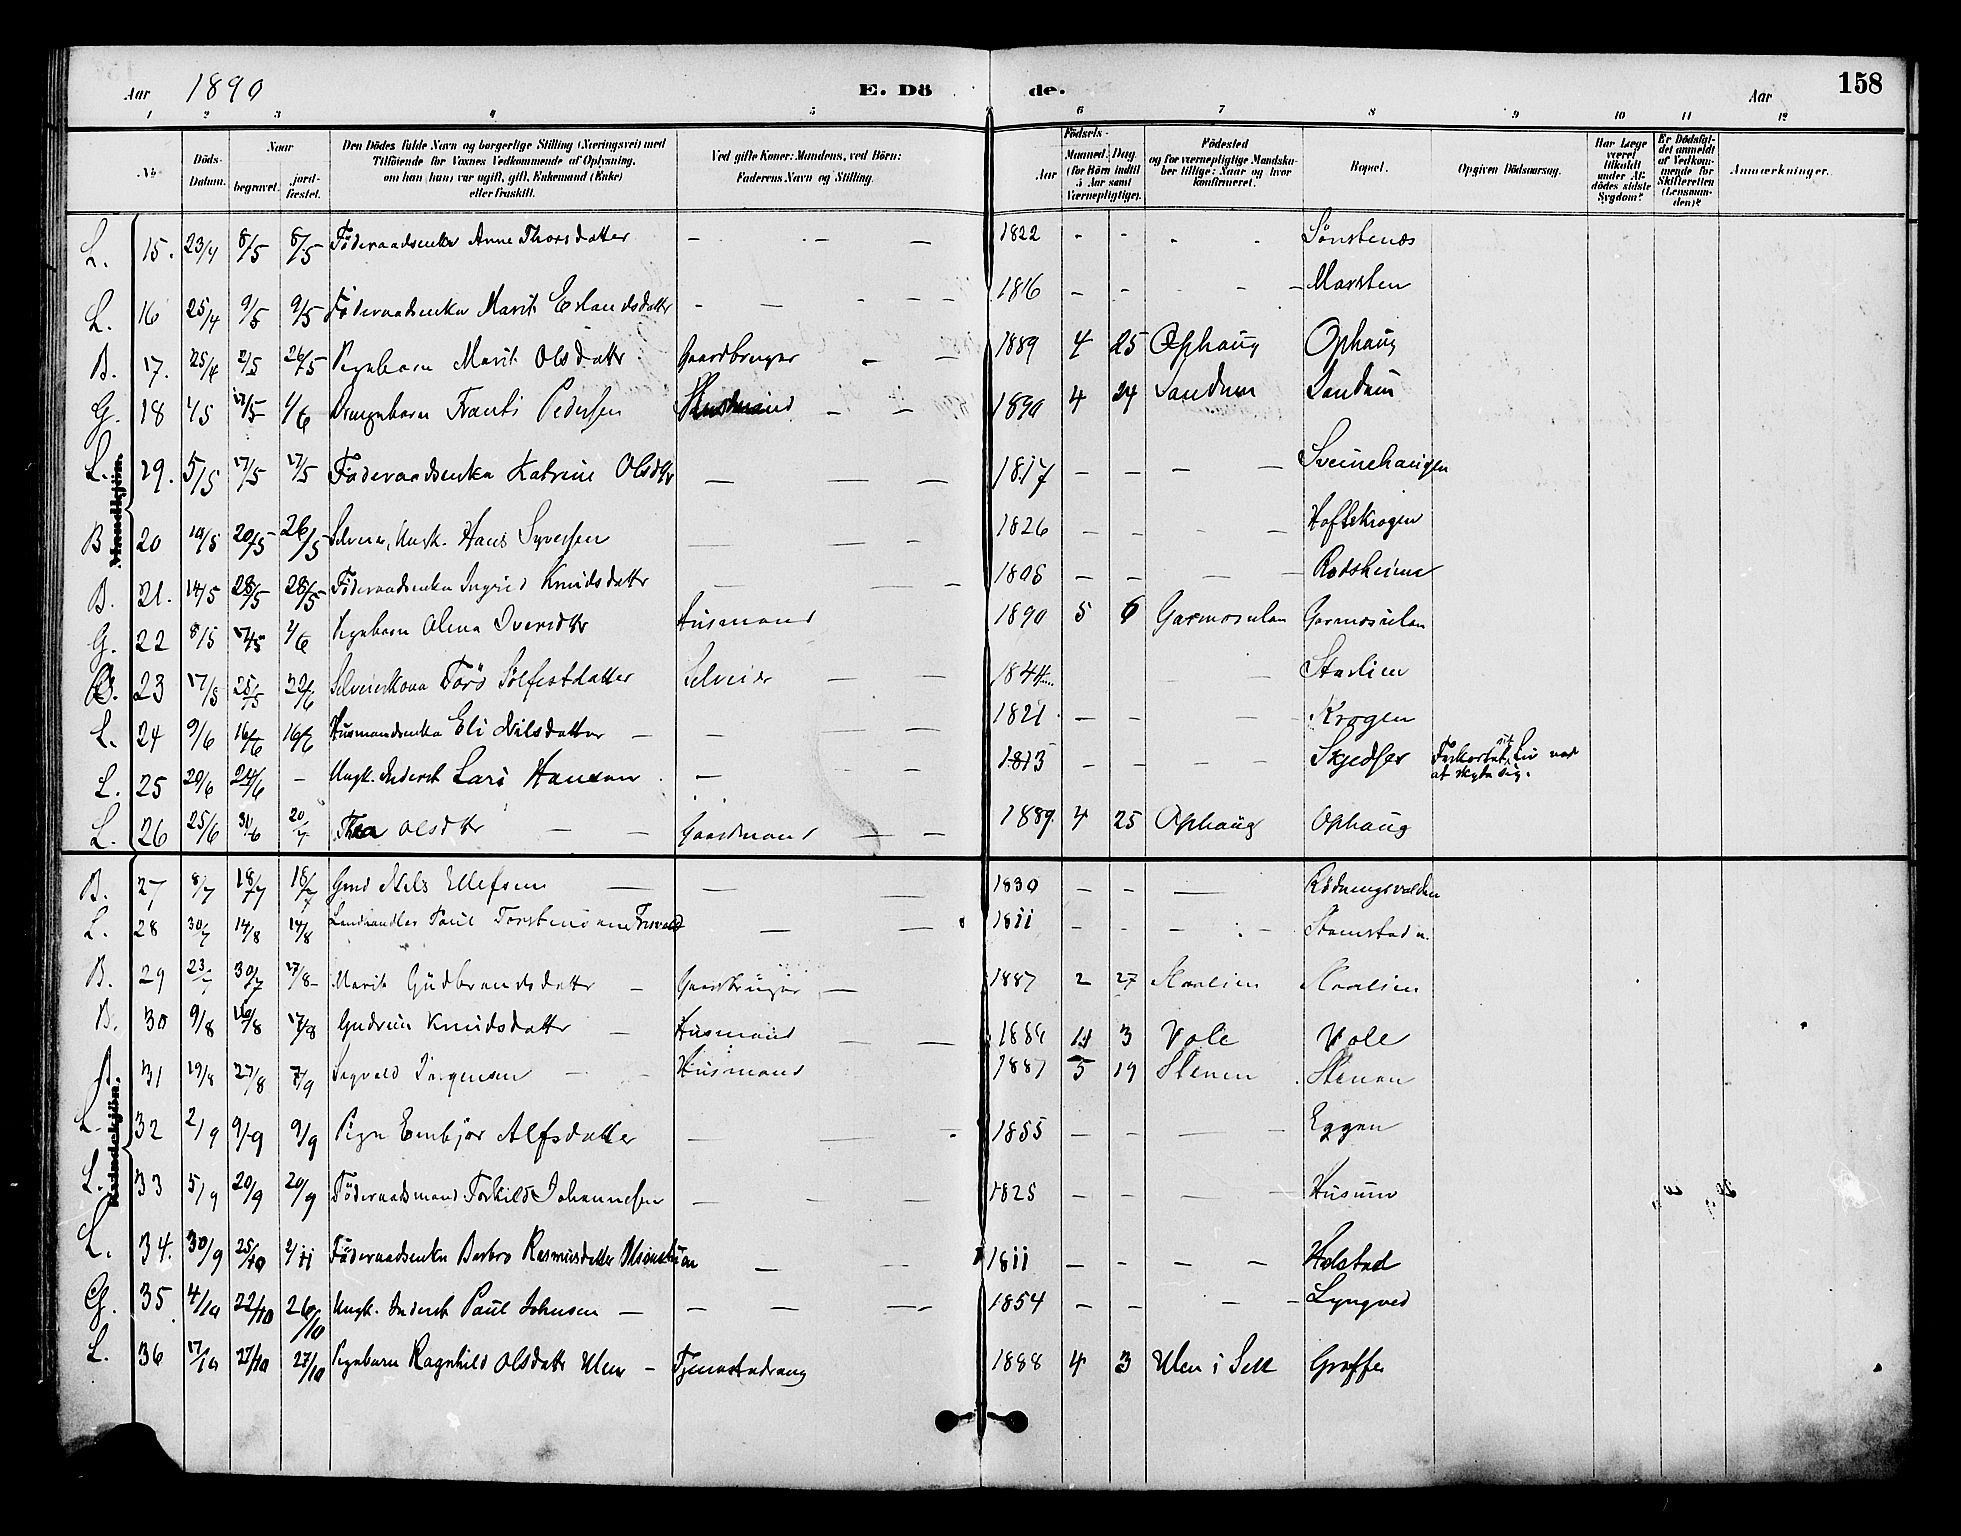 Aar 1890 E. Döde. Aar 158
1 2 3 4 5 6 7 8 9 10 11 12
No. Döds-Datum. Naar begravet. jordfæstet. Den Dödes fulde Navn og borgerlige Stilling (Næringsvei) med Tilföiende for Voxnes Vedkommende af Oplysning, om han (hun) var ugift, gift, Enkemand (Enke) eller fraskilt. Ved gifte Koner: Mandens, ved Börn: Faderens Navn og Stilling. Födsels- Aar Maaned. Dag. (for Börn indtil 5 Aar samt Værnepligtige). Födested og for værnepligtige Mandskaber tillige: Naar og hvor konfirmeret. Bopæl. Opgiven Dödsaarsag. Har Læge været tilkaldt under Afdödes sidste Sygdom? Er Dödsfaldet anmeldt af Vedkommende for Skifteretten (Lensmanden)? Anmærkninger.
Mandkjön.
L. 15. 23/4 8/5 8/5 Föderaadsenke Anne Thorsdatter - - - 1822 - - - - Sönstenes
L. 16 25/4 9/5 9/5 Föderaadsenka Marit Erlandsdatter - - - 1816 - - - - Marsten
B. 17. 25/4 2/5 26/5 Pigebarn Marit Olsdatter Gaardbruger - - 1889 4 25 Ophaug Ophaug
G. 18 4/5 17/5 1/6 Drengebarn Frants Pedersen Husmand - - 1890 4 24 Sandum Sandum
L. 19. 5/5 17/5 17/5 Föderaadsenka Katrine Olsdtr - - - 1817 - - - - Sveinehaugen
B 20 10/5 20/5 26/5 Selveier, Ungk. Hans Syversen - - - 1826 - - - - Hoftskrogen
B. 21. 14/5 28/5 28/5 Föderaadsenka Ingrid Knudsdatter - - - 1808 - - - - Rodsheim
G. 22 8/5 17/5 1/6 Pigebarn Olena Iversdtr Husmand 1890 5 6 Garmosulan Garmosulan
B. 23 17/5 25/5 22/6 Selveierkona Törö Sölfestdatter Selveier - - 1844 Staulien
L. 24 9/6 16/6 16/6 Husmandsenka Eli Nilsdatter - - - 1821 - - - - Krogen
L. 25 20/6 24/6 - Ungk. Inderst Lars Hansen - - 1813 - - - - Skjedser Forkortet sit Liv ved at skyde sig.
L. 26 25/6 30/6 20/7 Thea Olsdtr - - Gaardmand - - 1889. 4 25 Ophaug Ophaug
Kvindekjön.
B. 27 8/7 18/7 18/7 Gmd Nels Ellefsen - - - 1830 - - - Rödningsvolden
L. 28 30/7 14/8 14/8 Landhandler Paul Torstensen - - 1811 - - - - Stamstad
B. 29 23/7 30/7 17/8 Marit Gudbrandsdatter - Gaardbruger - 1887 2 27 Staulien Staulien
B. 30 9/8 16/8 17/8 Gudrun Knudsdatter - Husmand - - 1886 11 3 Vole Vole
B 31 19/8 27/8 7/9 Sigvald Jörgensen - - Husmand 1887 5 19 Stenen Stenen
L. 32 2/9 9/9 9/9 Pige Embjör Alfsdatter - - - 1855 - - - - Eggen
L. 33 5/9 20/9 20/9 Föderaadsmand Torkild Johannesen - - - 1825 - - - - Husum
L. 34. 30/9 25/10 2/11 Föderaadsenka Barbro Rasmusdatter - - 1811 - - - - Holstad
G. 35 4/10 22/10 26/10 Ungk. Inderst Paul Johnsen - - - - 1854 - - - - Lyngved
L. 36 17/10 27/10 27/10 Pigebarn Ragnhild Olsdatter Ulen - Tjenestedreng 1888 4 3 Ulen i Sell Graffer